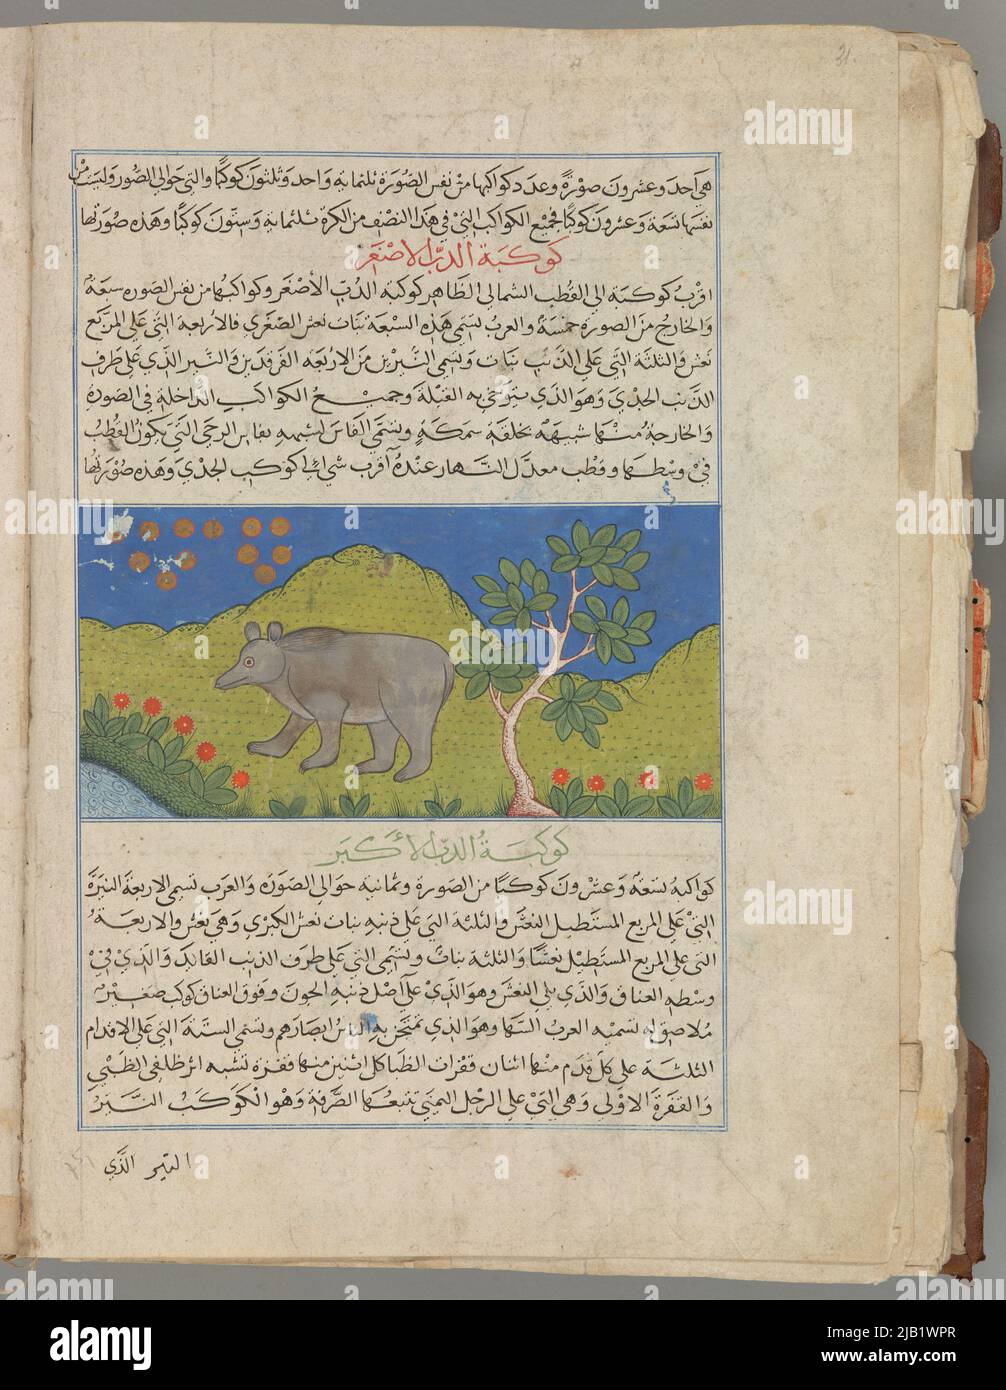 31.
هي احد وعشرون صورة وعدد كواكبها من نفس الصورة ثلثمائة واحد وثلثون كوكبا والتي حوالي الصور وليست من
نفسها تسعة وعشرون كوكبا فجميع الكواكب التي في هذا النصف من الكرة ثلثمائة وستون كوكبا وهذه صورتها
كوكبة الدب الاصغر
اقرب كوكبة الي القطب الشمالي الظاهر كوكبة الدب الأصغر وكواكبها من نفس الصوره سبعة
والخارج من الصورة خمسة والعرب تسمي هذه السبعة بنات نعش الصغري فالاربعة التي علي المربع
نعش والثلثة التي علي الذنب بنات وتسمي النيرين من الاربعة الفرقدين والنير الذي علي طرف
الذنب الجدي وهو الذي يتوخي به القبلة وجميع الكواكب الداخلة في الصورة
والخارجة منها شبيهة بخلقة سمكة وتسمي الفاس لشبهه بفاس الرحي التي يكون القطب
في وسطها وقطب معدل النهار عنده اقرب شئ الي كوكب الجدي وهذه صورتها
كوكبة الدب الأكبر
كواكبه تسعة وعشرون كوكبا من الصورة وثمانية حوالي الصورة والعرب تسمي الاربعة النيرة
التي علي المربع المستطيل النعش والثلثة التي علي ذنبه بنات نعش الكبري وهي نعش والاربعة
التي علي المربع المستطيل نعشا والثلثة بنات وتسمي التي علي طرف الذنب القايد والذي في
وسطه العناق والذي يلي النعش وهو الذي علي اصل ذنبه الجون وفوق العناق كوكب صغير
ملاصق له تسميه العرب السها وهو الذي تمتحن به الناس ابصارهم وتسمي الستة التي علي الاقدام
الثلثة علي كل قدم منها اثنان قفزات الظبا كل اثنين منها قفزة تشبه اثر ظلفي الظبي
والقفزة الاولي وهي التي علي الرجل اليمني تتبعها الصرفة وهو الكوكب النير
النير الذي
alamy
a
2JB1WPR
www.alamy.com